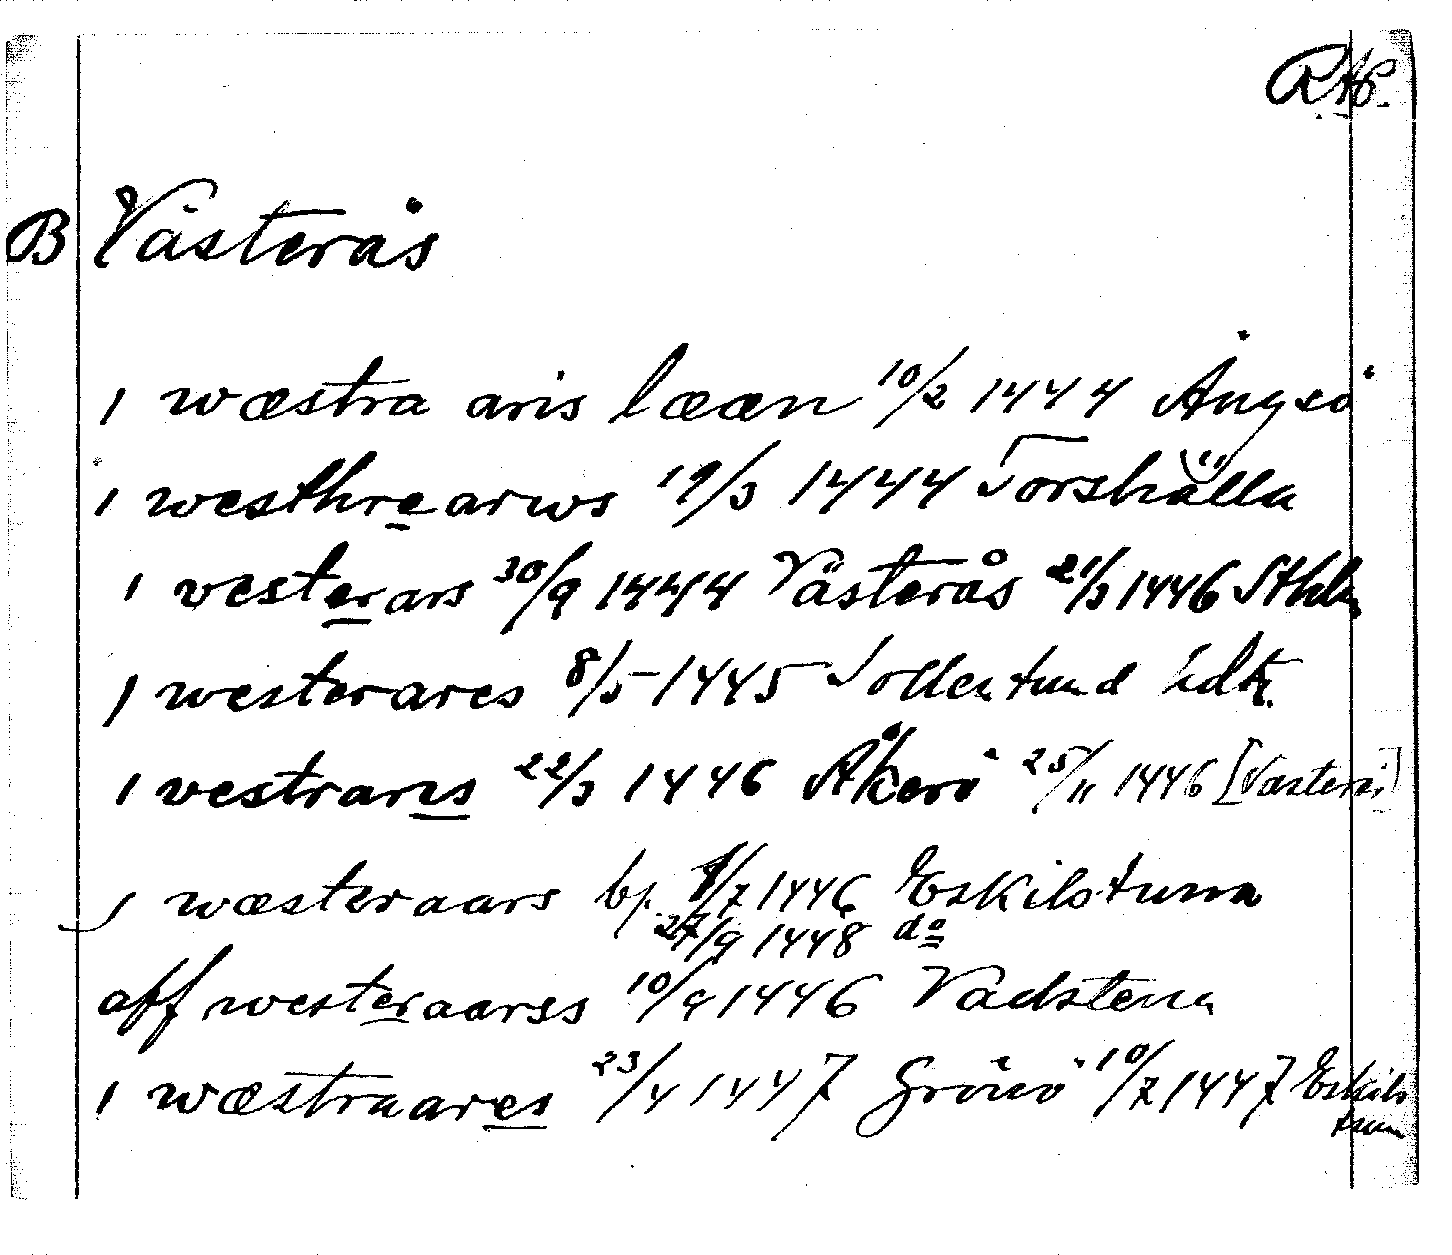 RAP.
B Västerås
i wæstra aris lææn 10/2 1444 Ängsö
i westhrearws 19/3 1444 Torshälla
i vesterars 30/9 1444 Västerås 21/3 1446 Sthlm
i westerares 8/5 1445 Sollentuna hdtg.
i vestrars 22/3 1446 Åkerö 25/11 1446 [Västerås]
i wæsteraars bp. 1/7 1446 Eskilstuna
27/9 1448 do
aff westeraarss 10/9 1446 Vadstena
i wæstraares 23/4 1447 Grönö 10/7 1447 Eskils
tuna